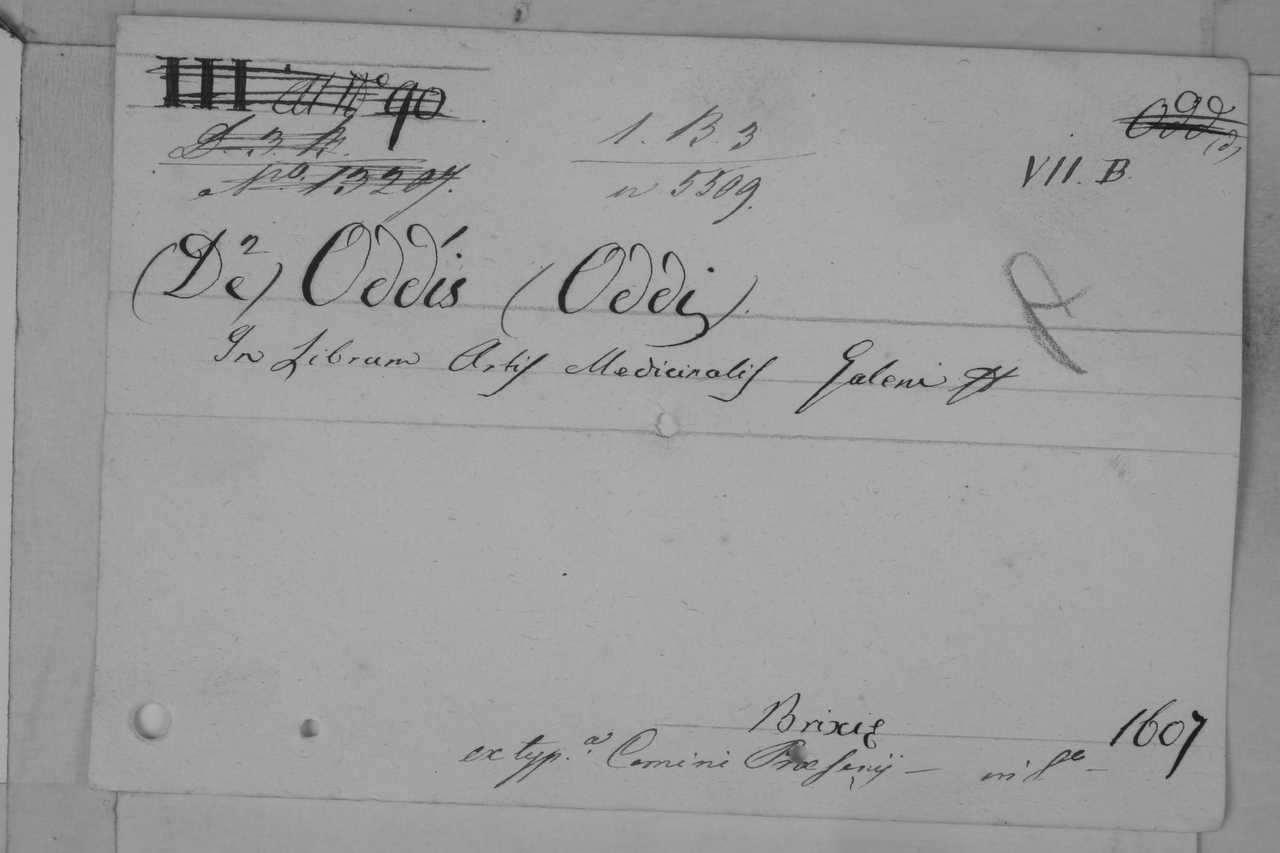 III al N.º 90
D. 3. K.
Nº. 13207.
1. B. 3
nº 5509.
Odd
VII. B.
(De) Oddis (Oddi).
In Librum Artis Medicinalis Galeni
Brixię 1607
ex typ.ª Comini Præsenij — in 8º —